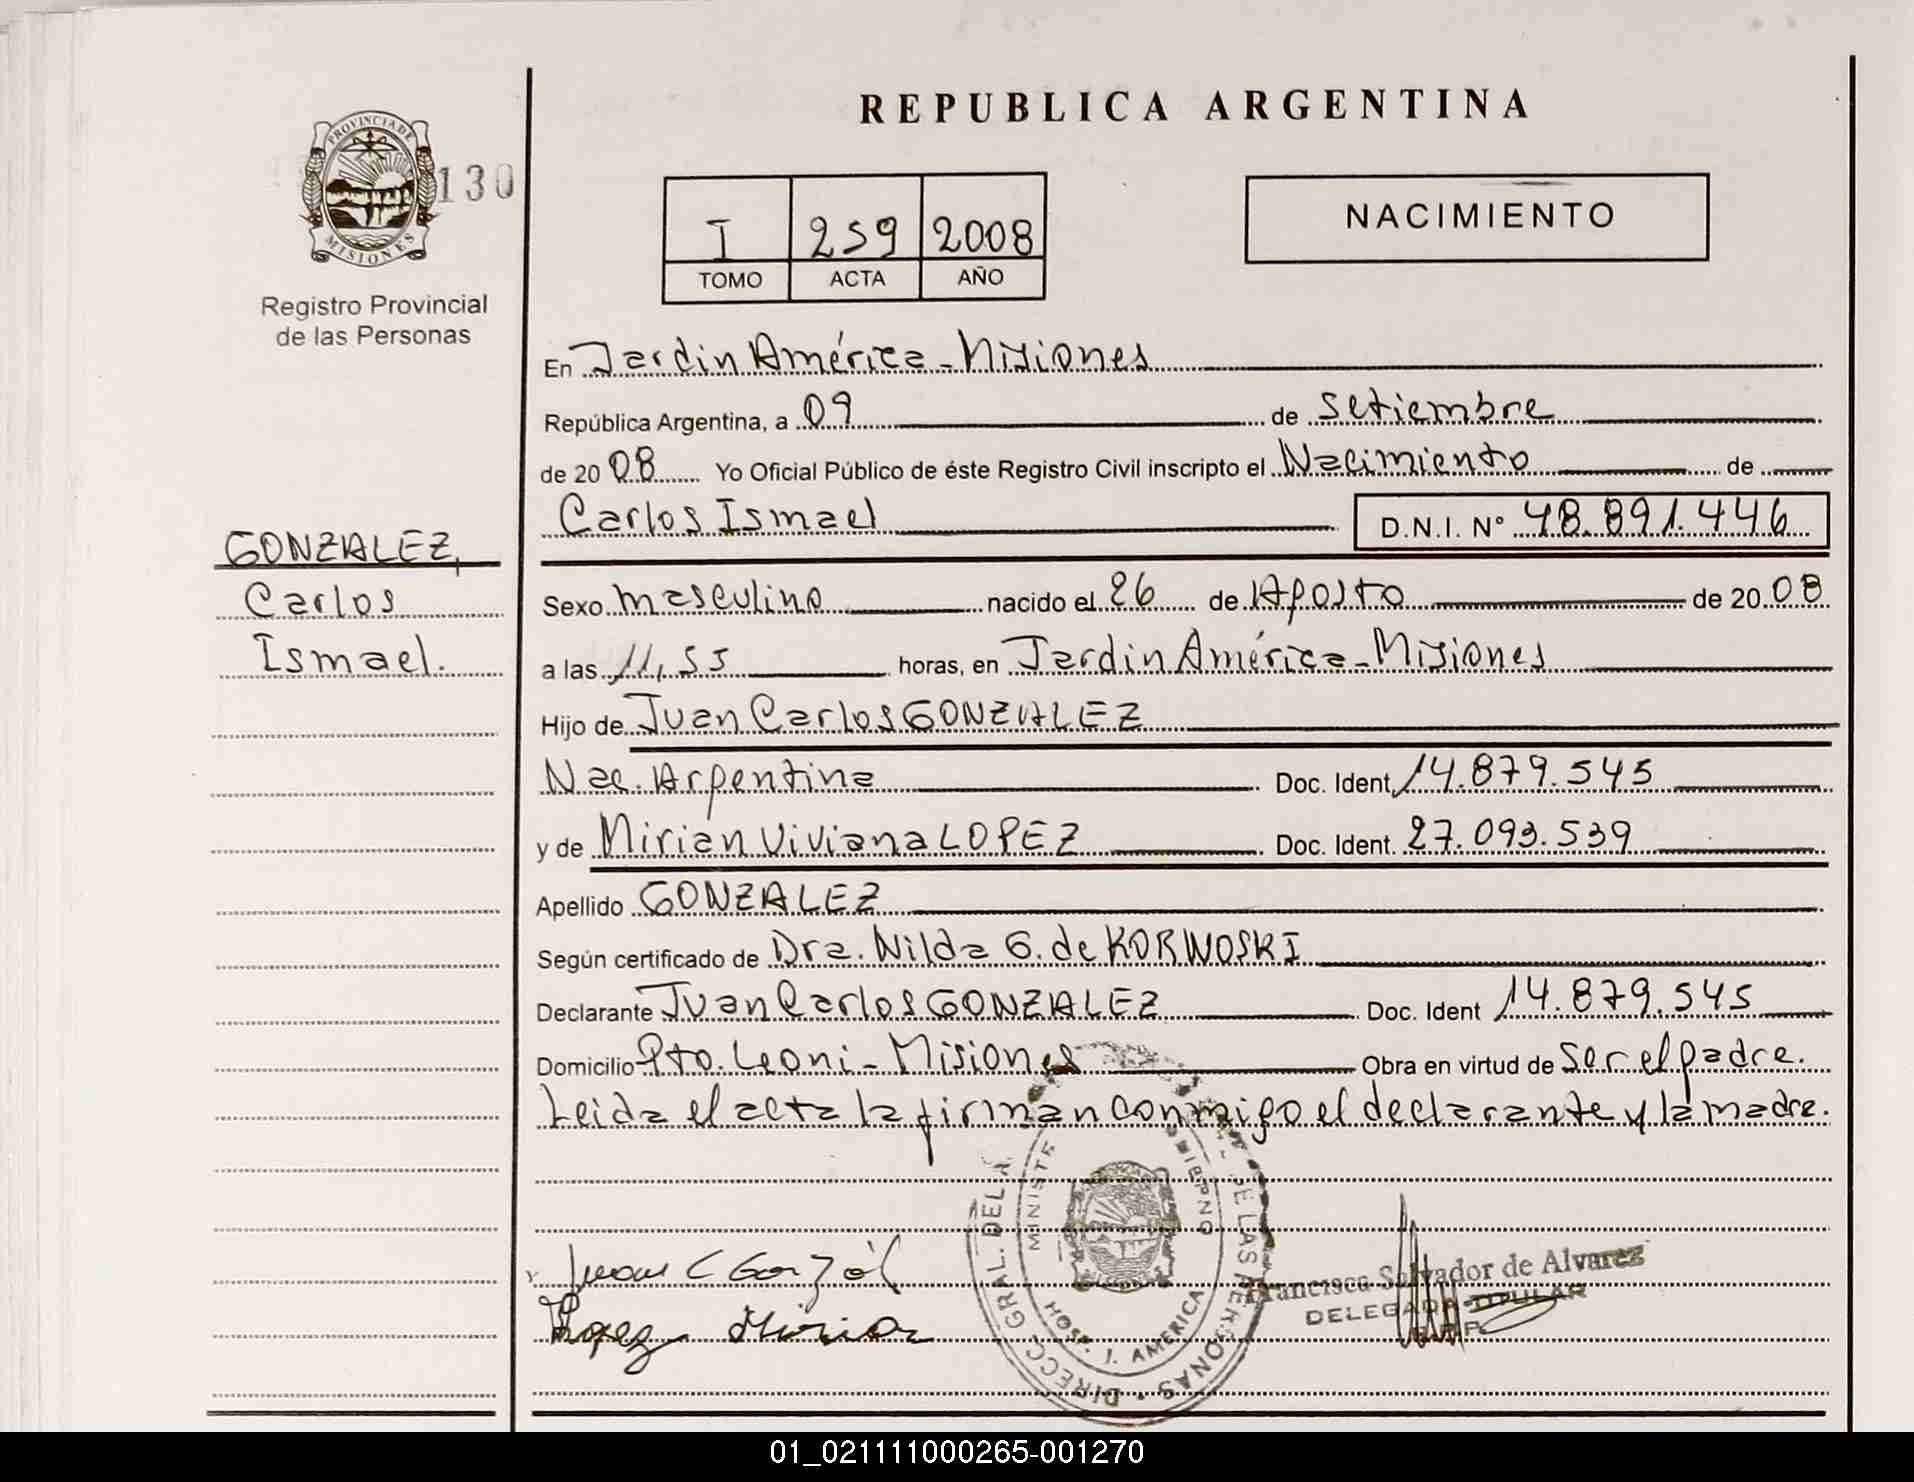 REPUBLICA ARGENTINA
PROVINCIA DE
MISIONES
130
Registro Provincial
de las Personas
I 259 2008
TOMO ACTA AÑO
NACIMIENTO
En Jardin América - Misiones
República Argentina, a 09 de Setiembre
de 2008 Yo Oficial Público de éste Registro Civil inscripto el Nacimiento de
Carlos Ismael D.N.I. N° 48.891.446
GONZALEZ,
Carlos
Ismael.
Sexo masculino nacido el 26 de Agosto de 2008
a las 11,55 horas, en Jardin América - Misiones
Hijo de Juan Carlos GONZALEZ
Nac. Argentina Doc. Ident 14.879.545
y de Mirian Viviana LOPEZ Doc. Ident. 27.093.539
Apellido GONZALEZ
Según certificado de Dra. Nilda G. de KORNOSKI
Declarante Juan Carlos GONZALEZ Doc. Ident 14.879.545
Domicilio Pto. Leoni - Misiones Obra en virtud de Ser el padre.
Leida el acta la firman conmigo el declarante y la madre.
DIRECC. GRAL. DEL DE LAS PERSONAS
MINISTE GOBIERNO
HOSP. J. AMERICA
Juan C Gonzál
Lopez Mirian
Francisca Salvador de Alvarez
DELEGADA TITULAR
01_021111000265-001270